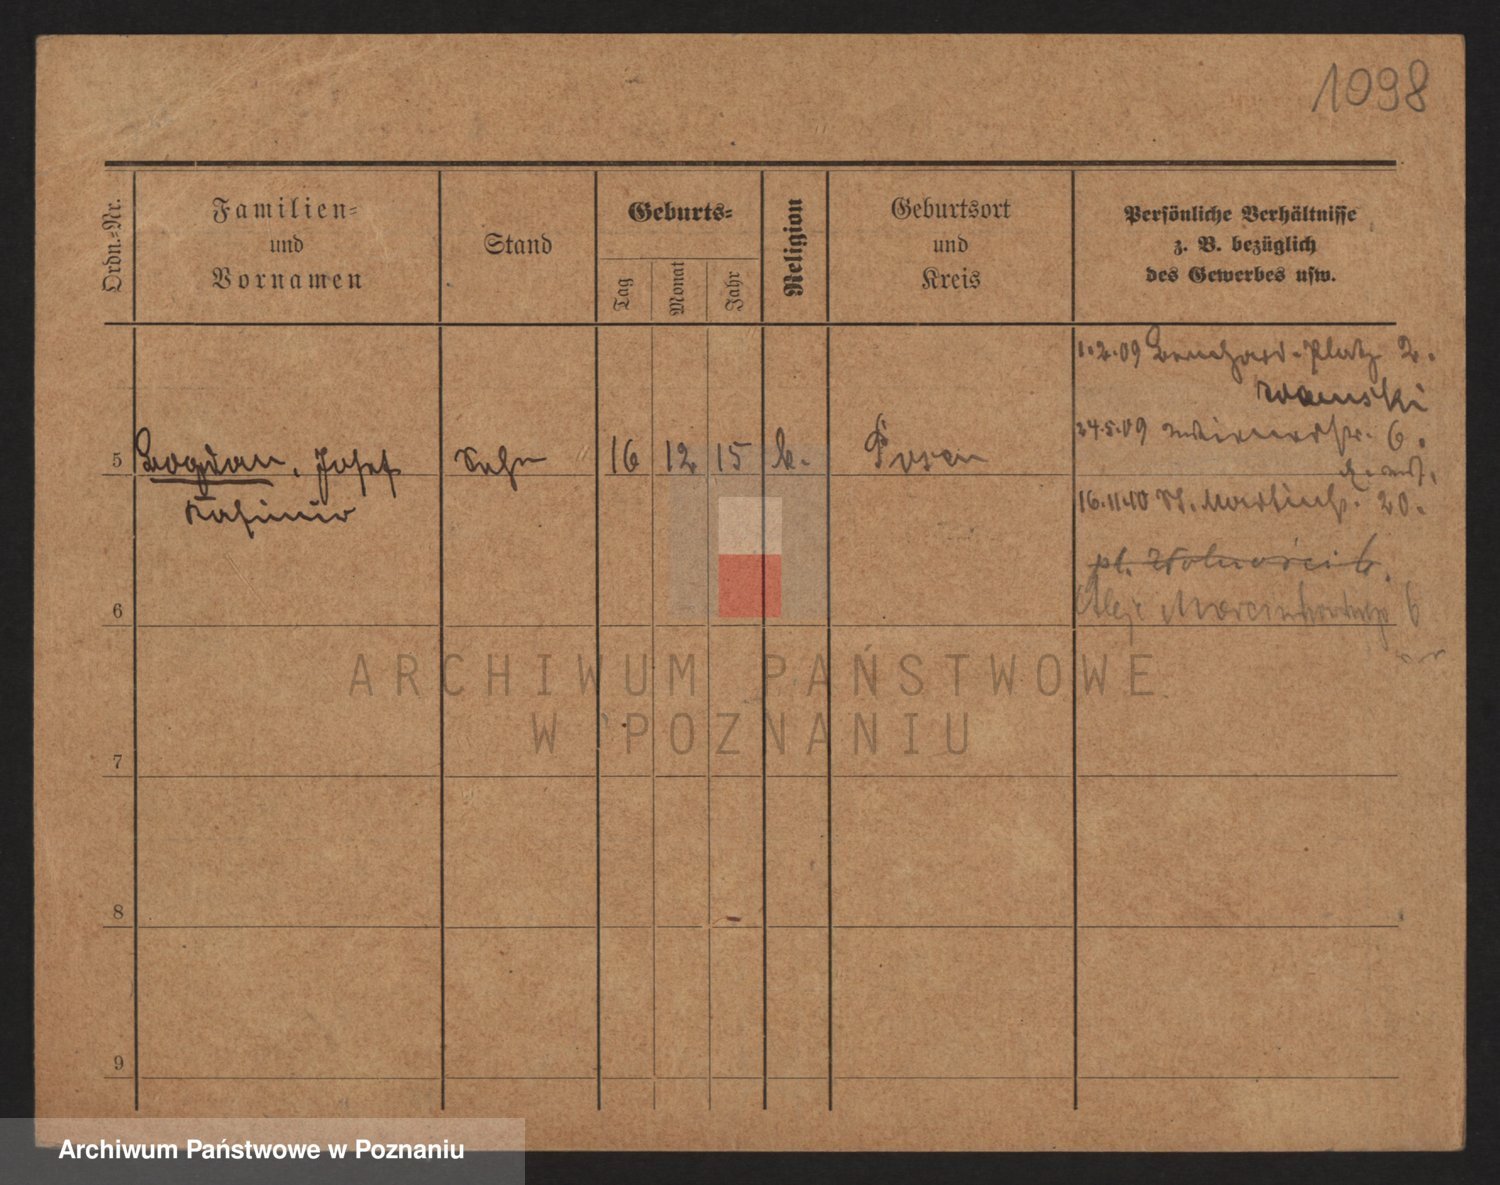 1098
Ordn.-Nr.
Familien-
und
Vornamen
Stand
Geburts-
Tag
Monat
Jahr
Religion
Geburtsort
und
Kreis
Persönliche Verhältnisse
z. B. bezüglich
des Gewerbes usw.
1.2.09 Bernhard-Platz 2.
24.5.09 6.
16.11.10 St. Martinstr. 20.
pl. Wolności 6.
Aleje Marcinkowskiego 6
5 Bogdan, Josef Sohn 16 12 15 k. Posen
Kasimir
6
7
8
9
ARCHIWUM PAŃSTWOWE
W POZNANIU
Archiwum Państwowe w Poznaniu